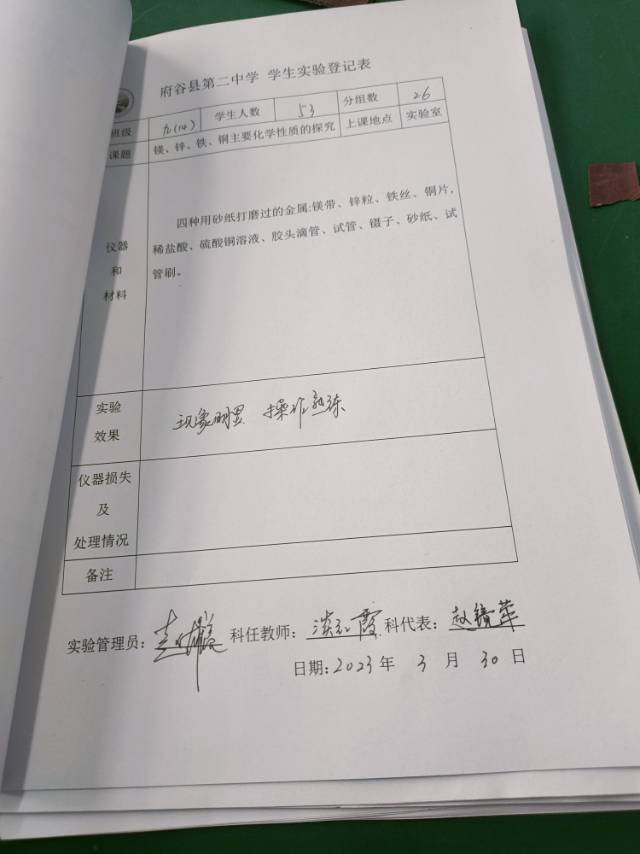 府谷县第二中学 学生实验登记表
班级 九(14) 学生人数 53 分组数 26
课题 镁、锌、铁、铜主要化学性质的探究 上课地点 实验室
仪器
和
材料
四种用砂纸打磨过的金属:镁带、锌粒、铁丝、铜片,
稀盐酸、硫酸铜溶液、胶头滴管、试管、镊子、砂纸、试
管刷。
实验
效果
现象明显 操作熟练
仪器损失
及
处理情况
备注
实验管理员: 科任教师: 科代表:
日期:2023年 3 月 30 日